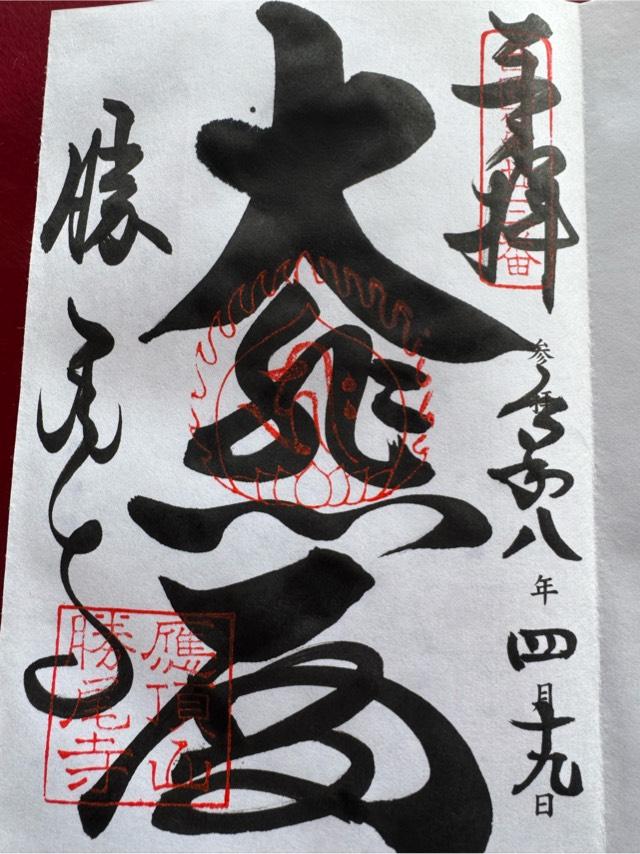 奉拝
参拝 令和八年四月十九日
大悲殿
勝尾寺
應頂山
勝尾寺